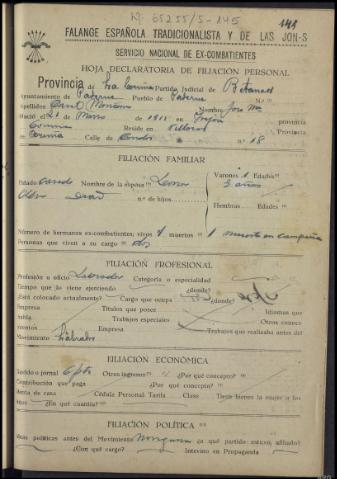 Nº 65255/S-145
141
FALANGE ESPAÑOLA TRADICIONALISTA Y DE LAS JON-S
SERVICIO NACIONAL DE EX-COMBATIENTES
HOJA DECLARATORIA DE FILIACIÓN PERSONAL
Provincia de La Coruña Partido Judicial de Betanzos
Ayuntamiento de Paderne Pueblo de Paderne N.º
Apellidos Nombre Jose Mª
Nació el 21 de Marzo de 1911 en provincia
Coruña Reside en Provincia
Coruña Calle de 18
FILIACIÓN FAMILIAR
Estado casado Nombre de la esposa Varones 1 Edades
3 años
n.º de hijos
Hembras Edades
Número de hermanos ex-combatientes; vivos muertos 1 muerto en campaña
Personas que viven a su cargo dos
FILIACIÓN PROFESIONAL
Profesión u oficio Labrador Categoría o especialidad
Tiempo que lo viene ejerciendo ¿donde?
Está colocado actualmente? Cargo que ocupa ¿donde?
Empresa Títulos que posee Idiomas que
habla Trabajos especiales Otros conoce
Empresa Trabajos que realizaba antes del
Movimiento Labrador
FILIACIÓN ECONÓMICA
Sueldo o jornal 6 pts Otros ingresos ¿Por qué concepto?
Contribución que paga ¿Por qué concepto?
Renta de casa Cédula Personal Tarifa Clase Tiene bienes la mujer o los
hijos ¿En qué cuantía?
FILIACIÓN POLÍTICA
Ideas políticas antes del Movimiento Ninguna ¿a qué partido estuvo afiliado?
¿Con qué cargo? Intervino en Propaganda